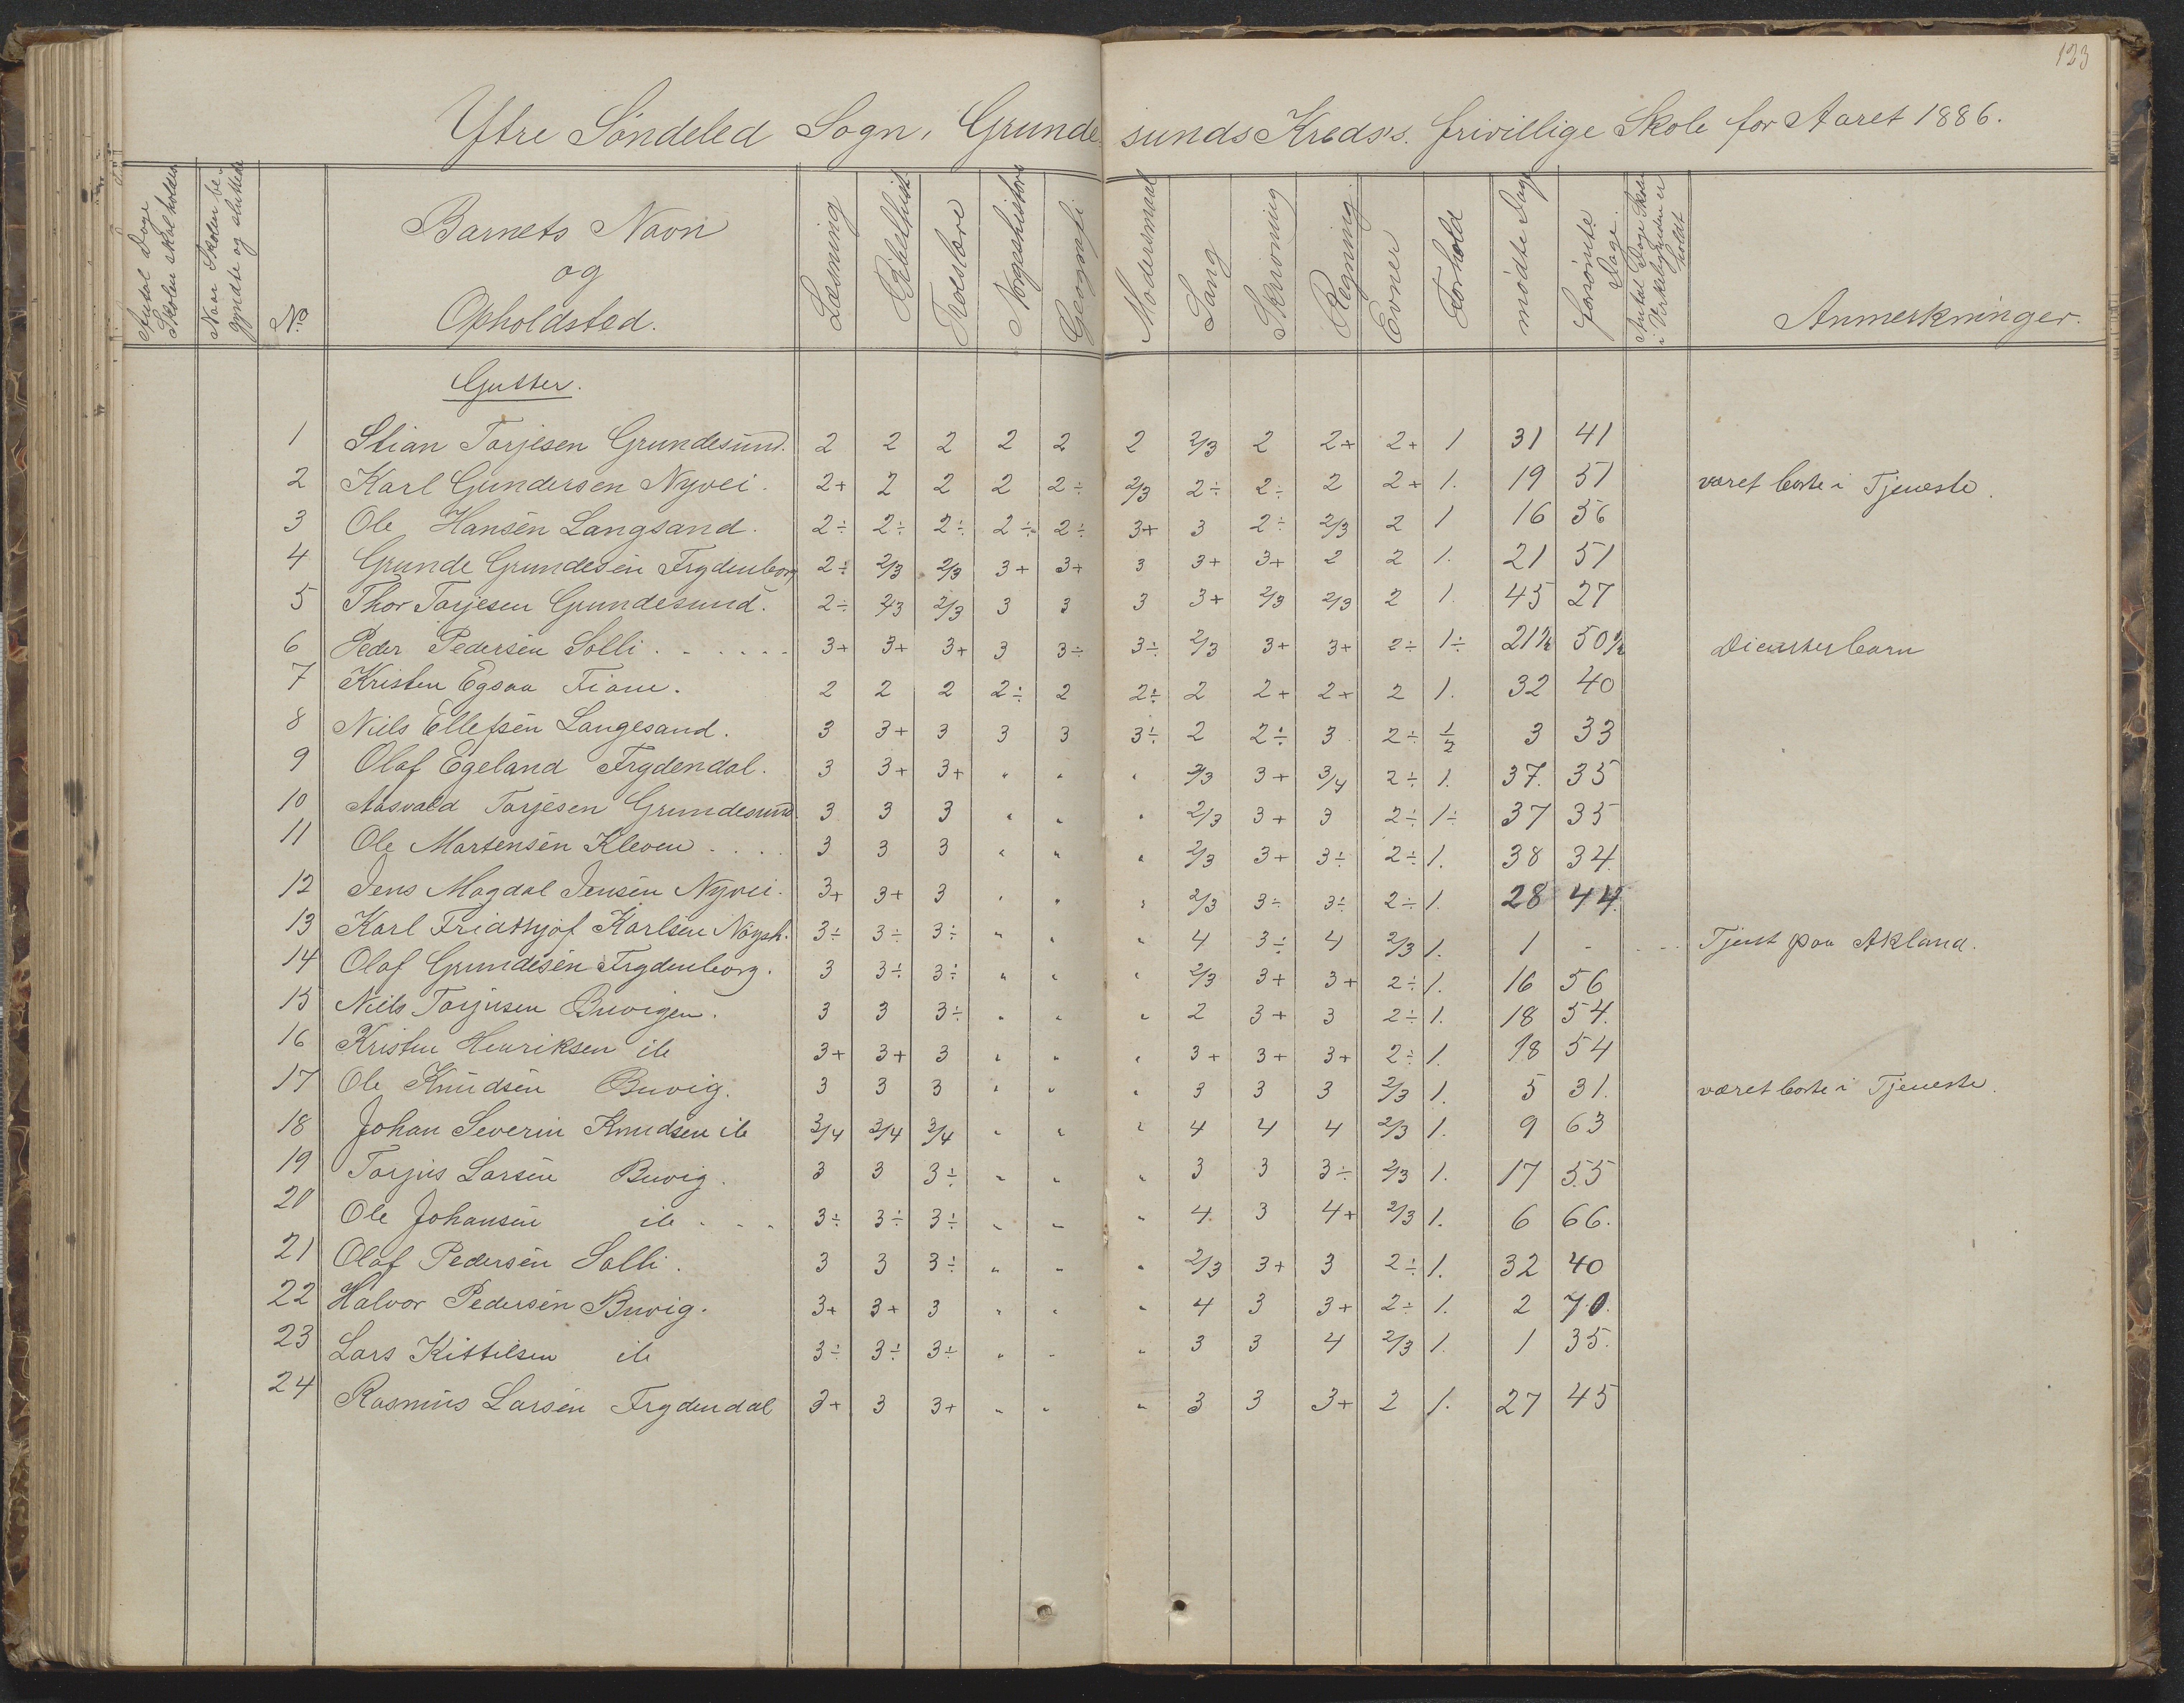 123
Ytre Søndeled Sogn, Grundesunds Kreds's. frivillige Skole for Aaret 1886.
Antal Dage Skolen skal holdes
Naar Skolen begyndte og sluttede
No
Barnets Navn og Opholdsted.
Læsning
Bibelhist
Troeslære
Norgeshistorie
Geografi
Modersmaal
Sang
Skrivning
Regning.
Evner
Forhold
mødte Dage
forsømte Dage.
Antal Dage Skole i Virkeligheden er holdt
Anmerkninger.
Gutter.
1 Stian Tarjesen Grundesund. 2 2 2 2 2 2 2/3 2 2+ 2+ 1 31 41
2 Karl Gundersen Nyvei. 2+ 2 2 2 2÷ 2/3 2÷ 2÷ 2 2+ 1. 19 51 været borte i Tjeneste.
3 Ole Hansen Langsand. 2÷ 2÷ 2÷ 2÷ 2÷ 3+ 3 2÷ 2/3 2 1 16 56
4 Grunde Grundesen Frydenborg 2÷ 2/3 2/3 3+ 3+ 3 3+ 3+ 2 2 1. 21 51
5 Thor Tarjesen Grundesund. 2÷ 2/3 2/3 3 3 3 3+ 2/3 2/3 2 1. 45 27
6 Peder Pedersen Solli . . . . . . 3+ 3+ 3+ 3 3÷ 3÷ 2/3 3+ 3+ 2÷ 1÷ 21½ 50½
7 Kristen Egsaa Fiane. 2 2 2 2÷ 2 2÷ 2 2+ 2+ 2 1. 32 40
8 Niels Ellefsen Langesand. 3 3+ 3 3 3 3÷ 2 2÷ 3 2÷ ½ 3 33
9 Olaf Egeland Frydendal. 3 3+ 3+ " " " 2/3 3+ 3/4 2÷ 1. 37. 35
10 Aasvald Tarjesen Grundesund 3 3 3 " " " 2/3 3+ 3 2÷ 1÷ 37 35
11 Ole Martensen Kleven . . . . 3 3 3 " " " 2/3 3+ 3÷ 2÷ 1. 38 34.
12 Jens Magdal Jensen Nyvei. 3+ 3+ 3 " " " 2/3 3÷ 3÷ 2÷ 1. 28 44.
13 Karl Fridthjof Karlsen 3÷ 3÷ 3÷ " " " 4 3÷ 4 2/3 1. 1 - Tjent paa Akland.
14 Olaf Grundesen Frydenborg. 3 3÷ 3÷ " " " 2/3 3+ 3+ 2÷ 1. 16 56
15 Niels Tarjusen Buvigen. 3 3 3÷ " " " 2 3+ 3 2÷ 1. 18 54.
16 Kristen Henriksen ib 3+ 3+ 3 " " " 3+ 3+ 3+ 2÷ 1. 18 54
17 Ole Knudsen Buvig. 3 3 3 " " " 3 3 3 2/3 1. 5 31. været borte i Tjeneste.
18 Johan Severin Knudsen ib 3/4 3/4 3/4 " " " 4 4 4 2/3 1. 9 63
19 Tarjus Larsen Buvig. 3 3 3÷ " " " 3 3 3÷ 2/3 1. 17 55
20 Ole Johansen ib . . . 3÷ 3÷ 3÷ " " " 4 3 4+ 2/3 1. 6 66.
21 Olaf Pedersen Solli. 3 3 3÷ " " " 2/3 3+ 3 2÷ 1. 32 40
22 Halvor Pedersen Buvig. 3+ 3+ 3 " " " 4 3 3+ 2÷ 1. 2 70.
23 Lars Kittilsen ib 3÷ 3÷ 3÷ " " " 3 3 4 2/3 1. 1 35.
24 Rasmus Larsen Frydendal 3+ 3 3+ " " " 3 3 3+ 2 1. 27 45